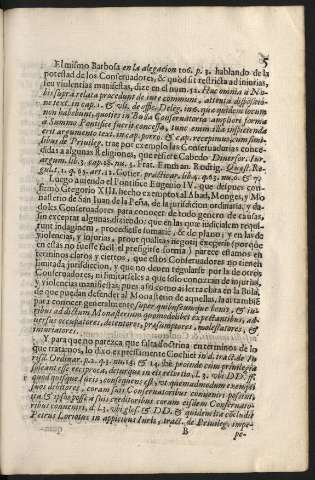 5
El mismo Barbosa en la alegacion 106. p. 3. hablando de la
potestad de los Conseruadores, & quòd sit restricta ad iniurias,
seu violentias manifestas, dize en el num. 52. Hæc omnia à No-
bis supra relata procedunt de iure communi, attenta dispositio-
ne text. in cap. 1. & vbi. de offic. Deleg. in 6. quæ quidem locum
non habebunt, quoties in Bulla Conseruatoria ampliori forma
à Summo Pontifice fuerit concessa, tunc enim illa inspicienda
erit argumento text. in cap. porro. & cap. recepimus, cum simi-
libus de Priuileg. trae por exemplo las Conseruadorias conce-
didas a algunas Religiones, que refiere Cabedo Diuersor. Iur.
argum. lib. 3. cap. 18. nu. 5. Frat. Emchan. Rodrig. Quæst. Re-
gul. t. 1. q. 65. art. 12. Gutier. practicar. lib. 4. q. 63. nu. 0. & 73.
Luego auiendo el Pontifice Eugenio IV. que despues con-
firmò Gregorio XIII. hecho exemptos al Abad, Monges, y Mo-
nasterio de San Iuan de la Peña, de la jurisdicion ordinaria, y dã-
doles Conseruadores para conocer de todo genero de causas,
sin exceptar algunas, diziendo: que en las que iudicialem requi-
runt indaginem, procediesse somatic, & de plano; y en las de
violencias, y injurias, prout qualitas negotij exegerit (porque
en estas no fuesse facil el prefigirle forma) parece estamos en
terminos claros y ciertos, que estos Conseruadores no tienen
limitada jurisdiccion, y que no deuen regularse por la de otros
Conseruadores, ni limitarseles a que solo conozcan de injurias,
y violencias manifiestas; pues assi como a letra clara en la Bula,
de que puedan defender al Monasterio de aquellas, la ai tambiẽ
para conocer generalmente super quibuscumque bonis, & iu-
ribus ad dictum Monasterium quomodolibet expectantibus, ad-
uersus occupatores, detentores, præsumptores, molestatores, &
iniuriatores.
Y para que no parezca que falta dotrina en terminos de lo
que tratamos, lo dixo expressamente Cochier in d. tract. de Iu-
risd. Ordinar. p. 2. q. 1. nu. 13. & 14. ibi: proinde cum priuilegia
soleant esse reciproca, deturque in eis retorsio, l. 3. vbi DD. ff.
quod quisque iuris, consequens est, vt quemadmodum exempti
suos debitores, coram suis Conseruatoribus conueniri possunt,
ita & ipsi possint à suis creditoribus coram eisdem Conseruato-
ribus conueniri, d. l. 3. vbi glos. & DD. & quidem ita concludit
Petrus Loriotus in apicibus Iuris, tract. de Priuileg. impe-
B pe-